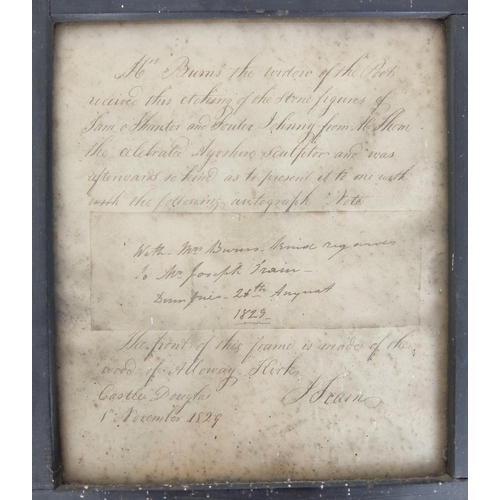 Mrs Burns the widow of the Poet
received this etching of the Stone figures of
Tam o Shanter and Souter Johnny from Mr Thom
the celebrated Ayrshire sculptor and was
afterwards so kind as to present it to me with
with the following autograph Note
With Mrs Burns kind regards
To Mr Joseph Train
Dumfries 28th August
1829
The front of this frame is made of the
wood of Alloway Kirk
Castle Douglas
1st November 1829
J Train